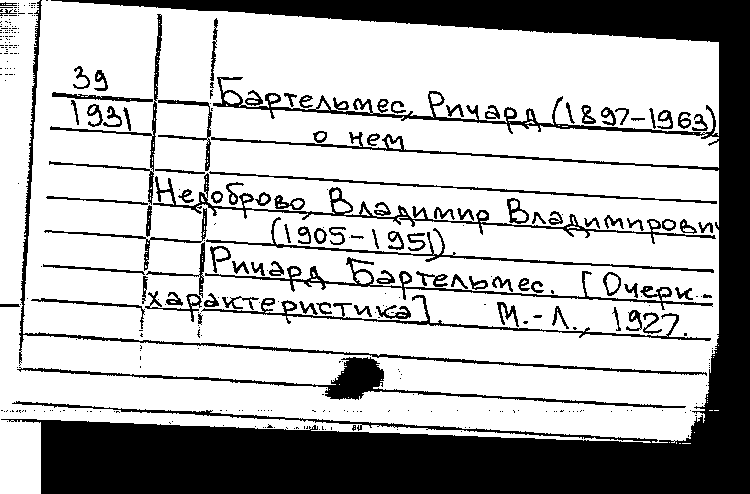 39
1931
Бартельмес, Ричард (1897-1963),
о нем
Недоброво, Владимир Владимирович
(1905-1951).
Ричард Бартельмес. [Очерк-
характеристика]. М.-Л., 1927.